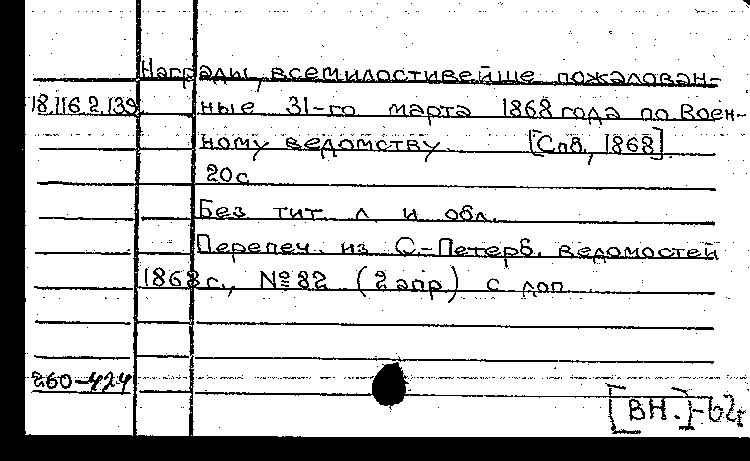 Награды, всемилостивейше пожалован-
18.116.2.139 ные 31-го марта 1868 года по Воен-
ному ведомству [Спб., 1868]
20 с
Без тит. л. и обл.
Перепеч. из С.-Петерб. ведомостей
1868 г., № 82 (2 апр.) с доп
260-424
[ВН.]-62г